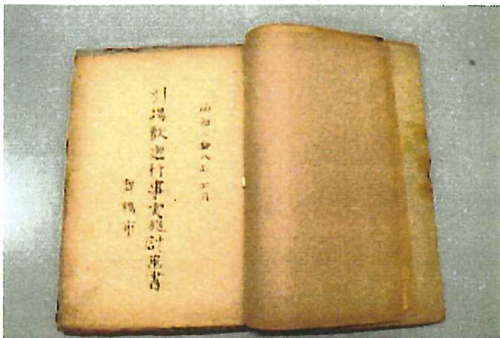 昭和
引揚歓迎行事実施計画書
舞鶴市